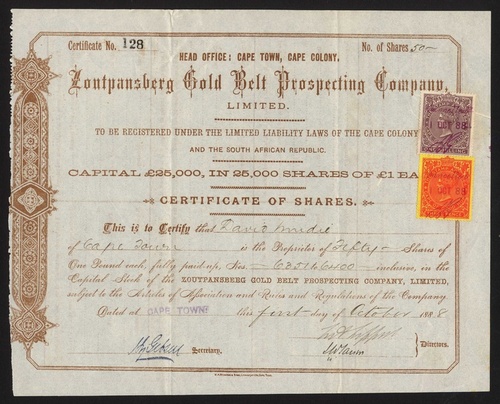 Certificate No. 128
No. of Shares 50
HEAD OFFICE: CAPE TOWN, CAPE COLONY.
Zoutpansberg Gold Belt Prospecting Company,
LIMITED.
TO BE REGISTERED UNDER THE LIMITED LIABILITY LAWS OF THE CAPE COLONY
AND THE SOUTH AFRICAN REPUBLIC.
CAPITAL £25,000, IN 25,000 SHARES OF £1 EA
CERTIFICATE OF SHARES.
This is to Certify that David
of Cape Town is the Proprietor of Fifty Shares of
One Pound each, fully paid-up, Nos. inclusive, in the
Capital Stock of the ZOUTPANSBERG GOLD BELT PROSPECTING COMPANY, LIMITED,
subject to the Articles of Association and Rules and Regulations of the Company.
Dated at CAPE TOWN this first day of October 1888
Secretary.
Directors.
OCT 88
OCT 88